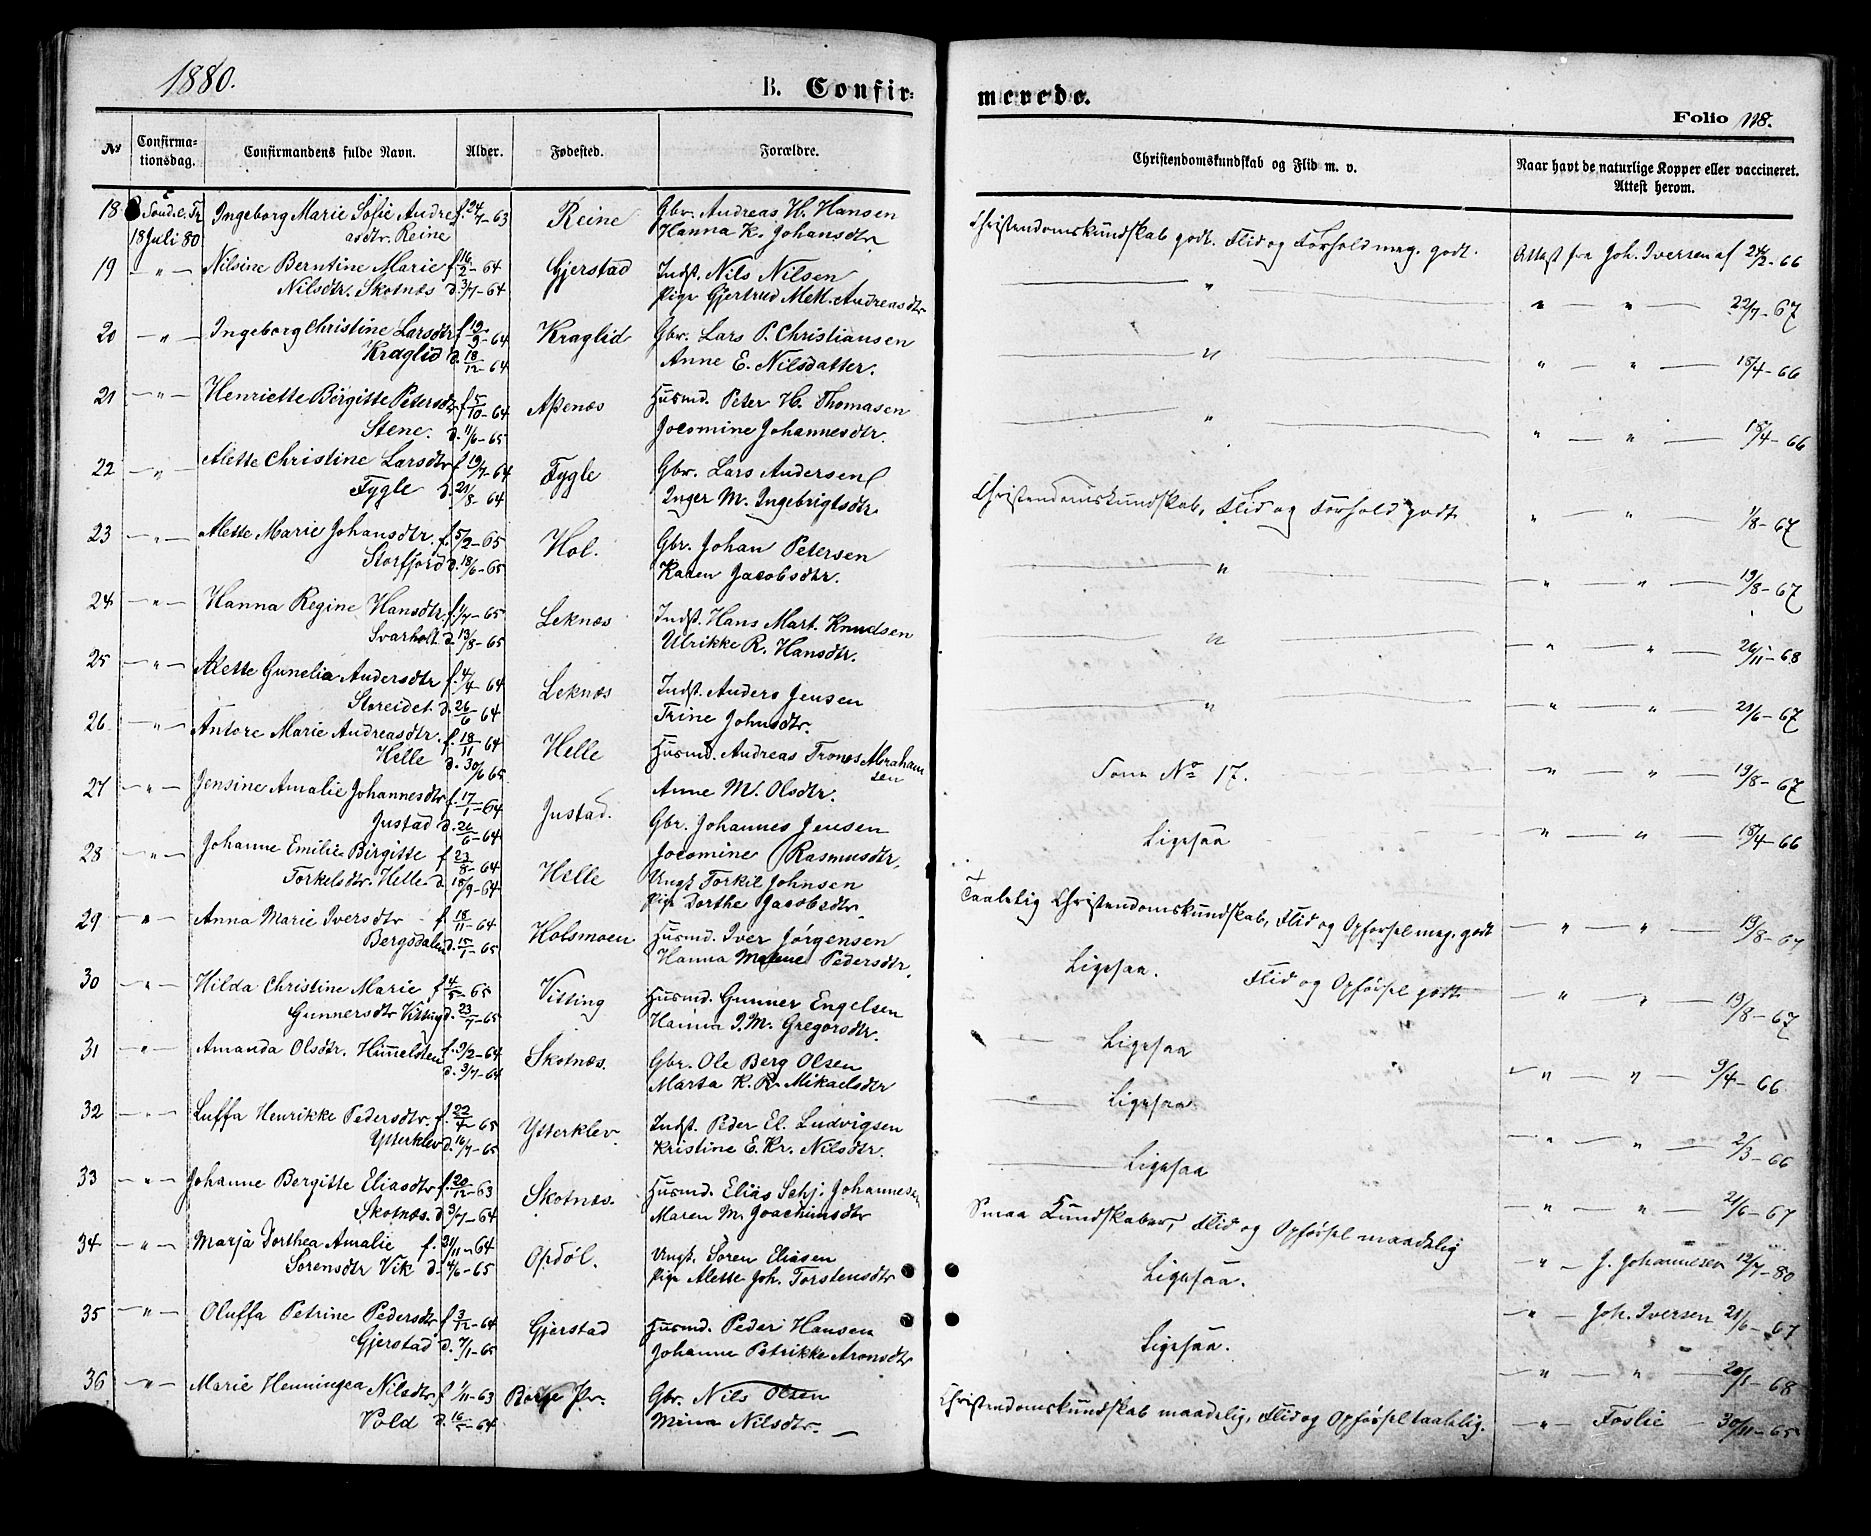 1880.
B. Confirmerede.
Folio 118.
No
Confirmationsdag.
Confirmandens fulde Navn.
Alder.
Fødested.
Forældre.
Christendomskundskab og Flid m. v.
Naar havt de naturlige Kopper eller vaccineret. Attest herom.
18 Sønd. e. Tr. Ingeborg Marie Sofie Andre f. 24/7-63 Reine Gbr. Andreas H. Hansen Christendomskundskab godt. Flid og Forhold meg. godt. Attest fra Joh. Iversen af 24/2-66
18 Juli 80 asdtr. Reine Hanna K. Johansdtr
19 — " — Nilsine Berntine Marie f. 16/2-64 Gjerstad Indst. Nils Nilsen — " — " — " — 22/7-67
Nilsdtr. Skotnæs d. 3/7-64 Pige Gjertrud Andreasdtr
20 — " — Ingeborg Christine Larsdtr f. 19/9-64 Kraglid Gbr. Lars P. Christiansen — " — " — " — 18/4-66
Kraglid d. 18/12-64 Anne E. Nilsdatter.
21 — " — Henriette Birgitte Petersdtr f. 5/10-64 Apenæs Husmd. Peter H. Thomasen — " — " — " — 18/4-66
Stene. d. 11/6-65 Jocomine Johannesdtr.
22 — " — Alette Christine Larsdtr f. 19/7-64 Fygle Gbr. Lars Andersen Christendomskundskab, Flid og Forhold godt " — " — 1/8-67
Fygle d. 21/8-64 Inger M. Ingebrigtsdtr
23 — " — Alette Marie Johansdtr. f. 5/2-65 Hol. Gbr. Johan Petersen — " — " — " — 19/8-67
Storfjord d. 18/6-65 Karen Jacobsdtr.
24 — " — Hanna Regine Hansdtr. f. 1/7-65 Leknæs Indst. Hans Mart. Knudsen — " — " — " — 26/11-68
Svarholt d. 13/8-65 Ulrikke R. Hansdtr.
25 — " — Alette Gunelia Andersdtr f. 4/4-64 Leknæs Indst. Anders Jensen — " — " — " — 21/6-67
Storeidet d. 26/6-64 Trine Johnsdtr.
26 — " — Antore Marie Andreasdtr. f. 18/11-64 Helle Husmd. Andreas Trones Abraham Som No 17. " — " — 19/8-67
Helle d. 30/6 65 sen
Anne M. Olsdtr.
27 — " — Jensine Amalie Johannesdtr f. 17/1-64 Justad. Gbr. Johannes Jensen Ligesaa " — " — 18/4-66
Justad d. 26/6-64 Jocomine Rasmusdtr.
28 — " — Johanne Emilie Birgitte f. 23/8-64 Helle Ungk. Torkil Johnsen Taalelig Christendomskundskab, Flid og Opførsel meg. godt — " — " — 19/8-67
Torkelsdtr. Helle d. 18/9-64 Pige Dorthe Jacobsdtr.
29 — " — Anna Marie Iversdtr f. 18/11-64 Holsmoen Husmd. Iver Jørgensen Ligesaa. Flid og Opførsel godt — " — " — 19/8-67
Bergsdalen d. 15/1-65 Hanna Pedersdtr.
30 — " — Hilda Christine Marie f. 4/5-65 Vitting Husmd. Gunner Engelsen — " — Ligesaa — " — " — 9/4-66
Gunnersdtr Vitting d. 23/7-65 Hanna I. M. Gregorsdtr.
31 — " — Amanda Olsdtr. Himelsten f. 9/2-64 Skotnæs. Gbr. Ole Berg Olsen — " — Ligesaa — " — " — 2/3-66
d. 3/7-64 Marta K. R. Mikaelsdtr
32 — " — Luffa Henrikke Pedersdtr. f. 22/2-65 Ytterklev. Indst. Peder El. Ludvigsen — Ligesaa — " — " — 21/6-67
Ytterklev d. 16/7-65 Kristine E. Kr. Nilsdtr.
33 — " — Johanne Bergitte Eliasdtr f. 20/12-63 Skotnæs. Husmd. Elias Schj. Johannesen Smaa Kundskaber, Flid og Opførsel maadelig — " — J. Johannesen 19/7-80
Skotnæs. d. 3/7-64 Maren M. Joachimsdtr
34 — " — Marja Dorthea Amalie f. 31/11-64 Opdøl. Ungk. Søren Eliasen Ligesaa. — " — Joh. Iversen 21/6-67
Sørensdtr Vik d. 4/6-65 Pige Alette Joh. Torstensdtr
35 — " — Oluffa Petrine Pedersdtr f. 3/12-64 Gjerstad Husmd. Peder Hansen Ligesaa. — " — " — 20/1-68
Gjerstad d. 7/1-65 Johanne Petrikke Aronsdtr
36 — " — Marie Henningea Nilsdtr. f. 1/11-63 Borge Pr. Gbr. Nils Olsen Christendomskundskab maadelig, Flid og Opførsel taalelig. — " — Foslie — 30/11-65
Vold d. 16/5-64 Mina Nilsdtr. —